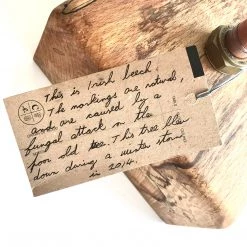 This is Irish beech.
The markings are natural,
and are caused by a
fungal attack on the
poor old tree. This tree blew
down during a winter storm
in 2014.